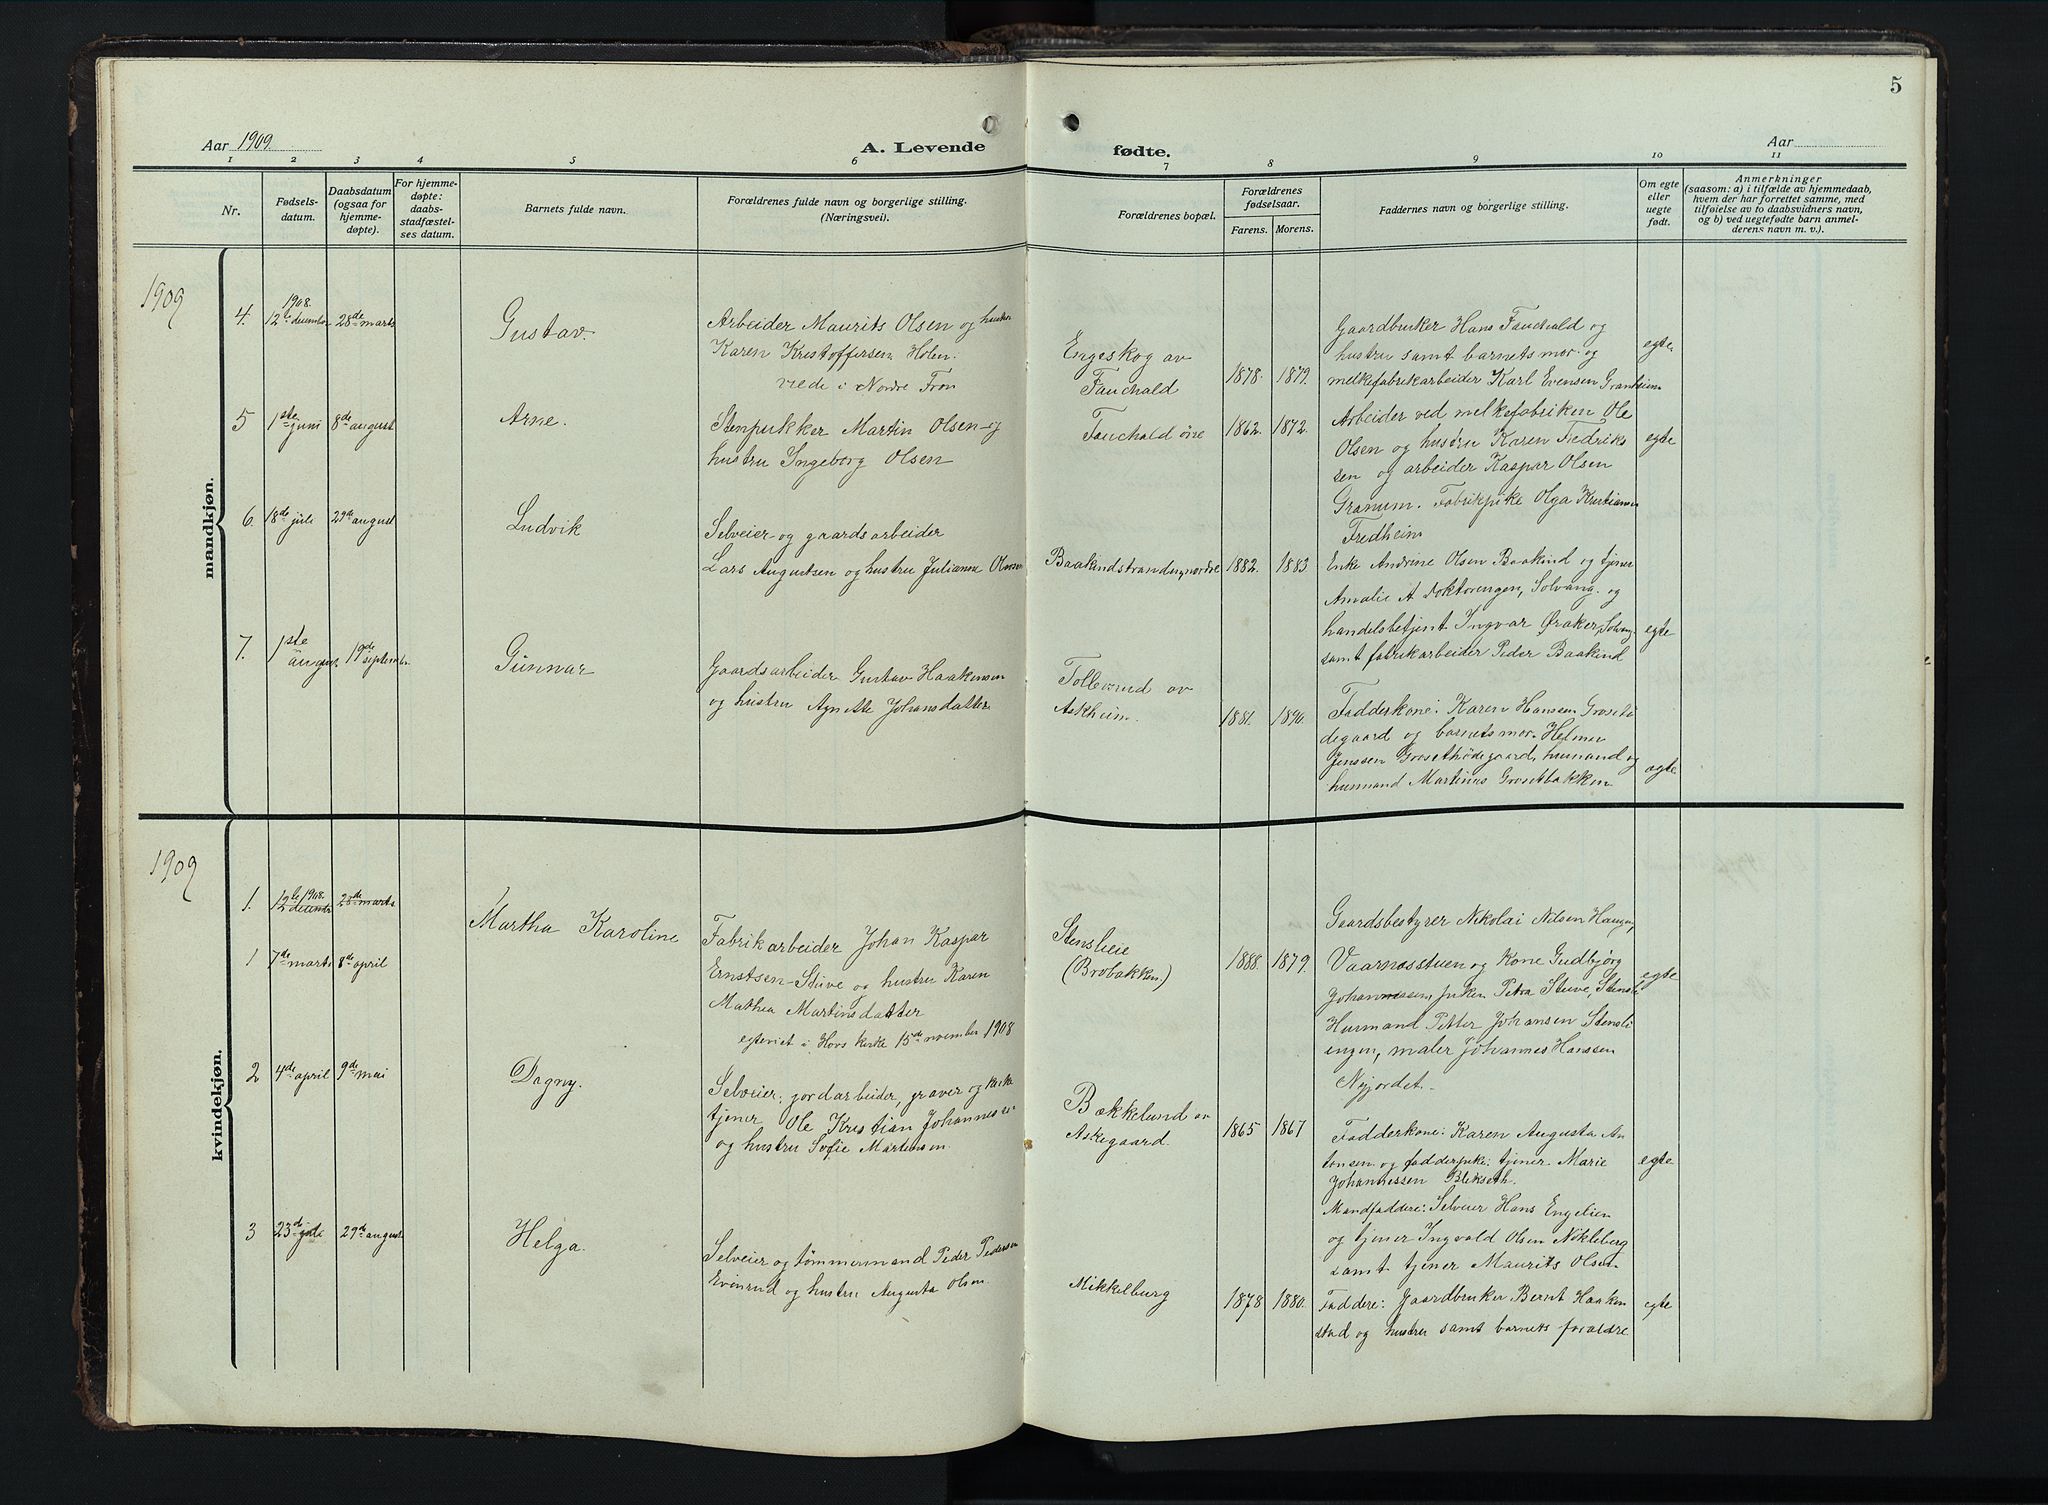 5
Aar 1909.
A. Levende
fødte.
Aar
1 2 3 4 5 6 7 8 9 10 11
Nr.
Fødsels-
datum.
Daabsdatum
(ogsaa for
hjemme-
døpte).
For hjemme-
døpte:
daabs-
stadfæstel-
ses datum.
Barnets fulde navn.
Forældrenes fulde navn og borgerlige stilling.
(Næringsvei).
Forældrenes bopæl.
Forældrenes
fødselsaar.
Farens. Morens.
Faddernes navn og borgerlige stilling.
Om egte
eller
uegte
født.
Anmerkninger
(saasom: a) i tilfælde av hjemmedaab,
hvem der har forrettet samme, med
tilføielse av to daabsvidners navn,
og b) ved uegtefødte barn anmel-
derens navn m. v.).
mandkjøn.
1909
4.
1908.
12te december
28de marts
Gustav.
Arbeider Maurits Olsen og hustru
Karen Kristoffersen Holen.
viede i Nordre Fron
Engeskog av
Fauchald
1878. 1879.
Gaardbruker Hans Fauchald og
hustru samt barnets mor og
melkefabrikarbeider Karl Evensen Granheim
egte.
5
1ste juni
8de august
Arne.
Stenpukker Martin Olsen og
hustru Ingeborg Olsen
Fauchald øvre
1862. 1872.
Arbeider ved melkefabriken Ole
Olsen og hustru Karen Fredriks
sen og arbeider Kaspar Olsen
Granum. Fabrikpike Olga Kristiansen
Fredheim
egte
6.
18de juli
29de august
Ludvik
Selveier og gaardsarbeider
Lars Augustsen og hustru Julianne Olsen
Baakindstranden, nordre
1882. 1883
Enke Andrine Olsen Baakind og tjener
Amalie A. Doktorengen, Solvang. og
handelsbetjent Ingvar Øraker, Solvang
samt fabrikarbeider Peder Baakind
egte
7.
1ste august
19de september
Gunnar
Gaardsarbeider Gustav Haakensen
og hustru Agnette Johansdatter
Tollevrud av
Askheim.
1881. 1890.
Fadderkone: Karen Hansen Groset
degaard og barnets mor. Helmer
Jenssen Grosethødegaard, husmand og
husmand Martinus Grosetbakken
egte
kvindekjøn.
1909
1.
12te 1908.
decembr
28de marts
1
7de marts
8de april
Martha Karoline
Fabrikarbeider Johan Kaspar
Ernstsen-Stuve og hustru Karen
Mathea Martinsdatter
egteviet i Hovs kirke 15de november 1908
Stensleie
(Brobakken)
1888. 1879.
Gaardsbestyrer Nikolai Nilsen Haugen,
Vaarnesstuen og Kone Gudbjørg
Johannessen, piken Petra Stuve, Stensli
Husmand Petter Johansen Stensli
engen, maler Johannes Hanssen
Nyjordet.
egte
2
4de april
9de mai
Dagny.
Selveier, jordarbeider, graver og kirke
tjener Ole Kristian Johannesen
og hustru Sofie Martinsen
Bækkelund av
Askegaard.
1865 1867
Fadderkone: Karen Augusta An
tonsen og fadderpike: tjener Marie
Johannessen Blikseth.
Mandfaddere: Selveier Hans Engelien
og tjener Ingvald Olsen Nikleberg
samt tjener Maurits Olset
egte
3
23de juli
29de august
Helga.
Selveier og tømmermand Peder Pedersen
Evenrud og hustru Augusta Olsen
Mikkelburg
1878 1880.
Faddere: Gaardbruker Bernt Haaken
stad og hustru samt barnets forældre
egte